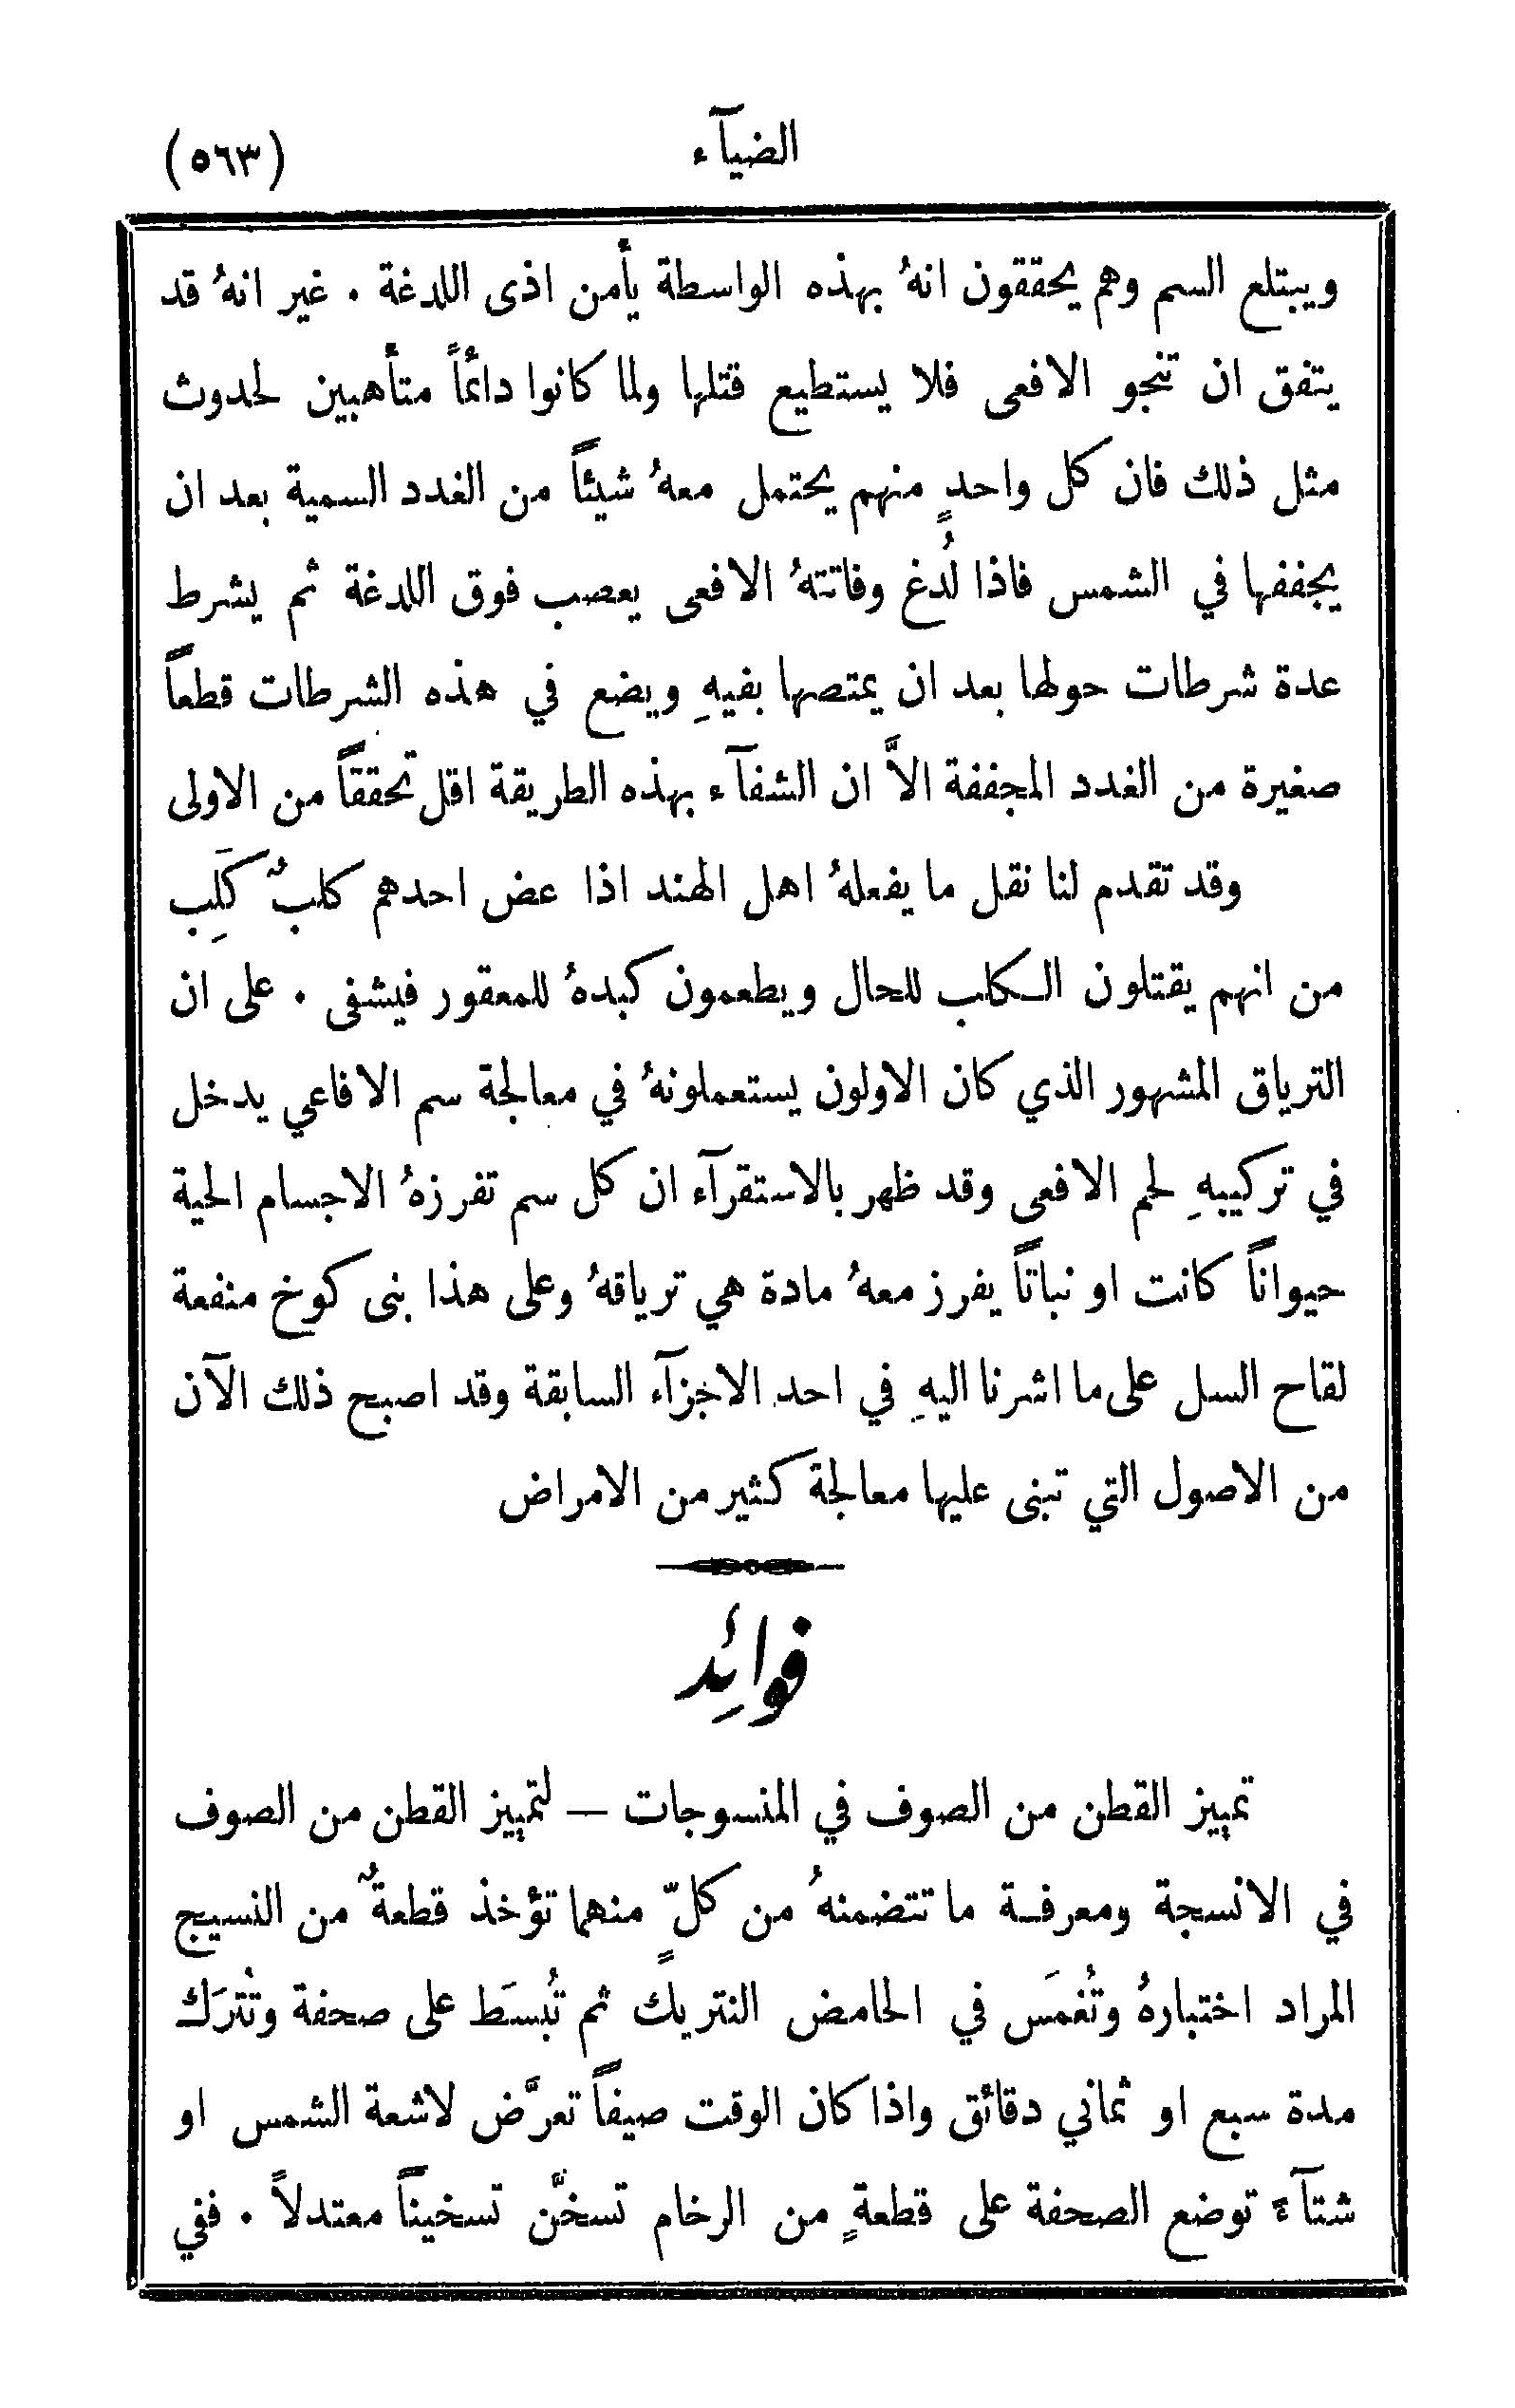 الضيآء
(٥٦٣)
ويبتلع السم وهم يحققون انهُ بهذه الواسطة يأمن اذى اللدغة . غير انهُ قد
يتفق ان تنجو الافعى فلا يستطيع قتلها ولما كانوا دائماً متأهبين لحدوث
مثل ذلك فان كل واحدٍ منهم يحتمل معهُ شيئاً من الغدد السمية بعد ان
يجففها في الشمس فاذا لُدغ وفاتتهُ الافعى يعصب فوق اللدغة ثم يشرط
عدة شرطات حولها بعد ان يمتصها بفيهِ ويضع في هذه الشرطات قطعاً
صغيرة من الغدد المجففة الاَّ ان الشفآء بهذه الطريقة اقل تحققاً من الاولى
وقد تقدم لنا نقل ما يفعلهُ اهل الهند اذا عض احدهم كلبٌ كَلِب
من انهم يقتلون الكلب للحال ويطعمون كبدهُ للمعقور فيشفى . على ان
الترياق المشهور الذي كان الاولون يستعملونهُ في معالجة سم الافاعي يدخل
في تركيبهِ لحم الافعى وقد ظهر بالاستقرآء ان كل سم تفرزهُ الاجسام الحية
حيواناً كانت او نباتاً يفرز معهُ مادة هي ترياقهُ وعلى هذا بنى كوخ منفعة
لقاح السل على ما اشرنا اليهِ في احد الاجزآء السابقة وقد اصبح ذلك الآن
من الاصول التي تبنى عليها معالجة كثير من الامراض
فوائِد
تمييز القطن من الصوف في المنسوجات — لتمييز القطن من الصوف
في الانسجة ومعرفة ما تتضمنهُ من كلّ منهما تؤخذ قطعةٌ من النسيج
المراد اختبارهُ وتُغمَس في الحامض النتريك ثم تُبسَط على صحفة وتُترَك
مدة سبع او ثماني دقائق واذا كان الوقت صيفاً تعرَّض لاشعة الشمس او
شتآءً توضع الصحفة على قطعةٍ من الرخام تسخَّن تسخيناً معتدلاً . ففي